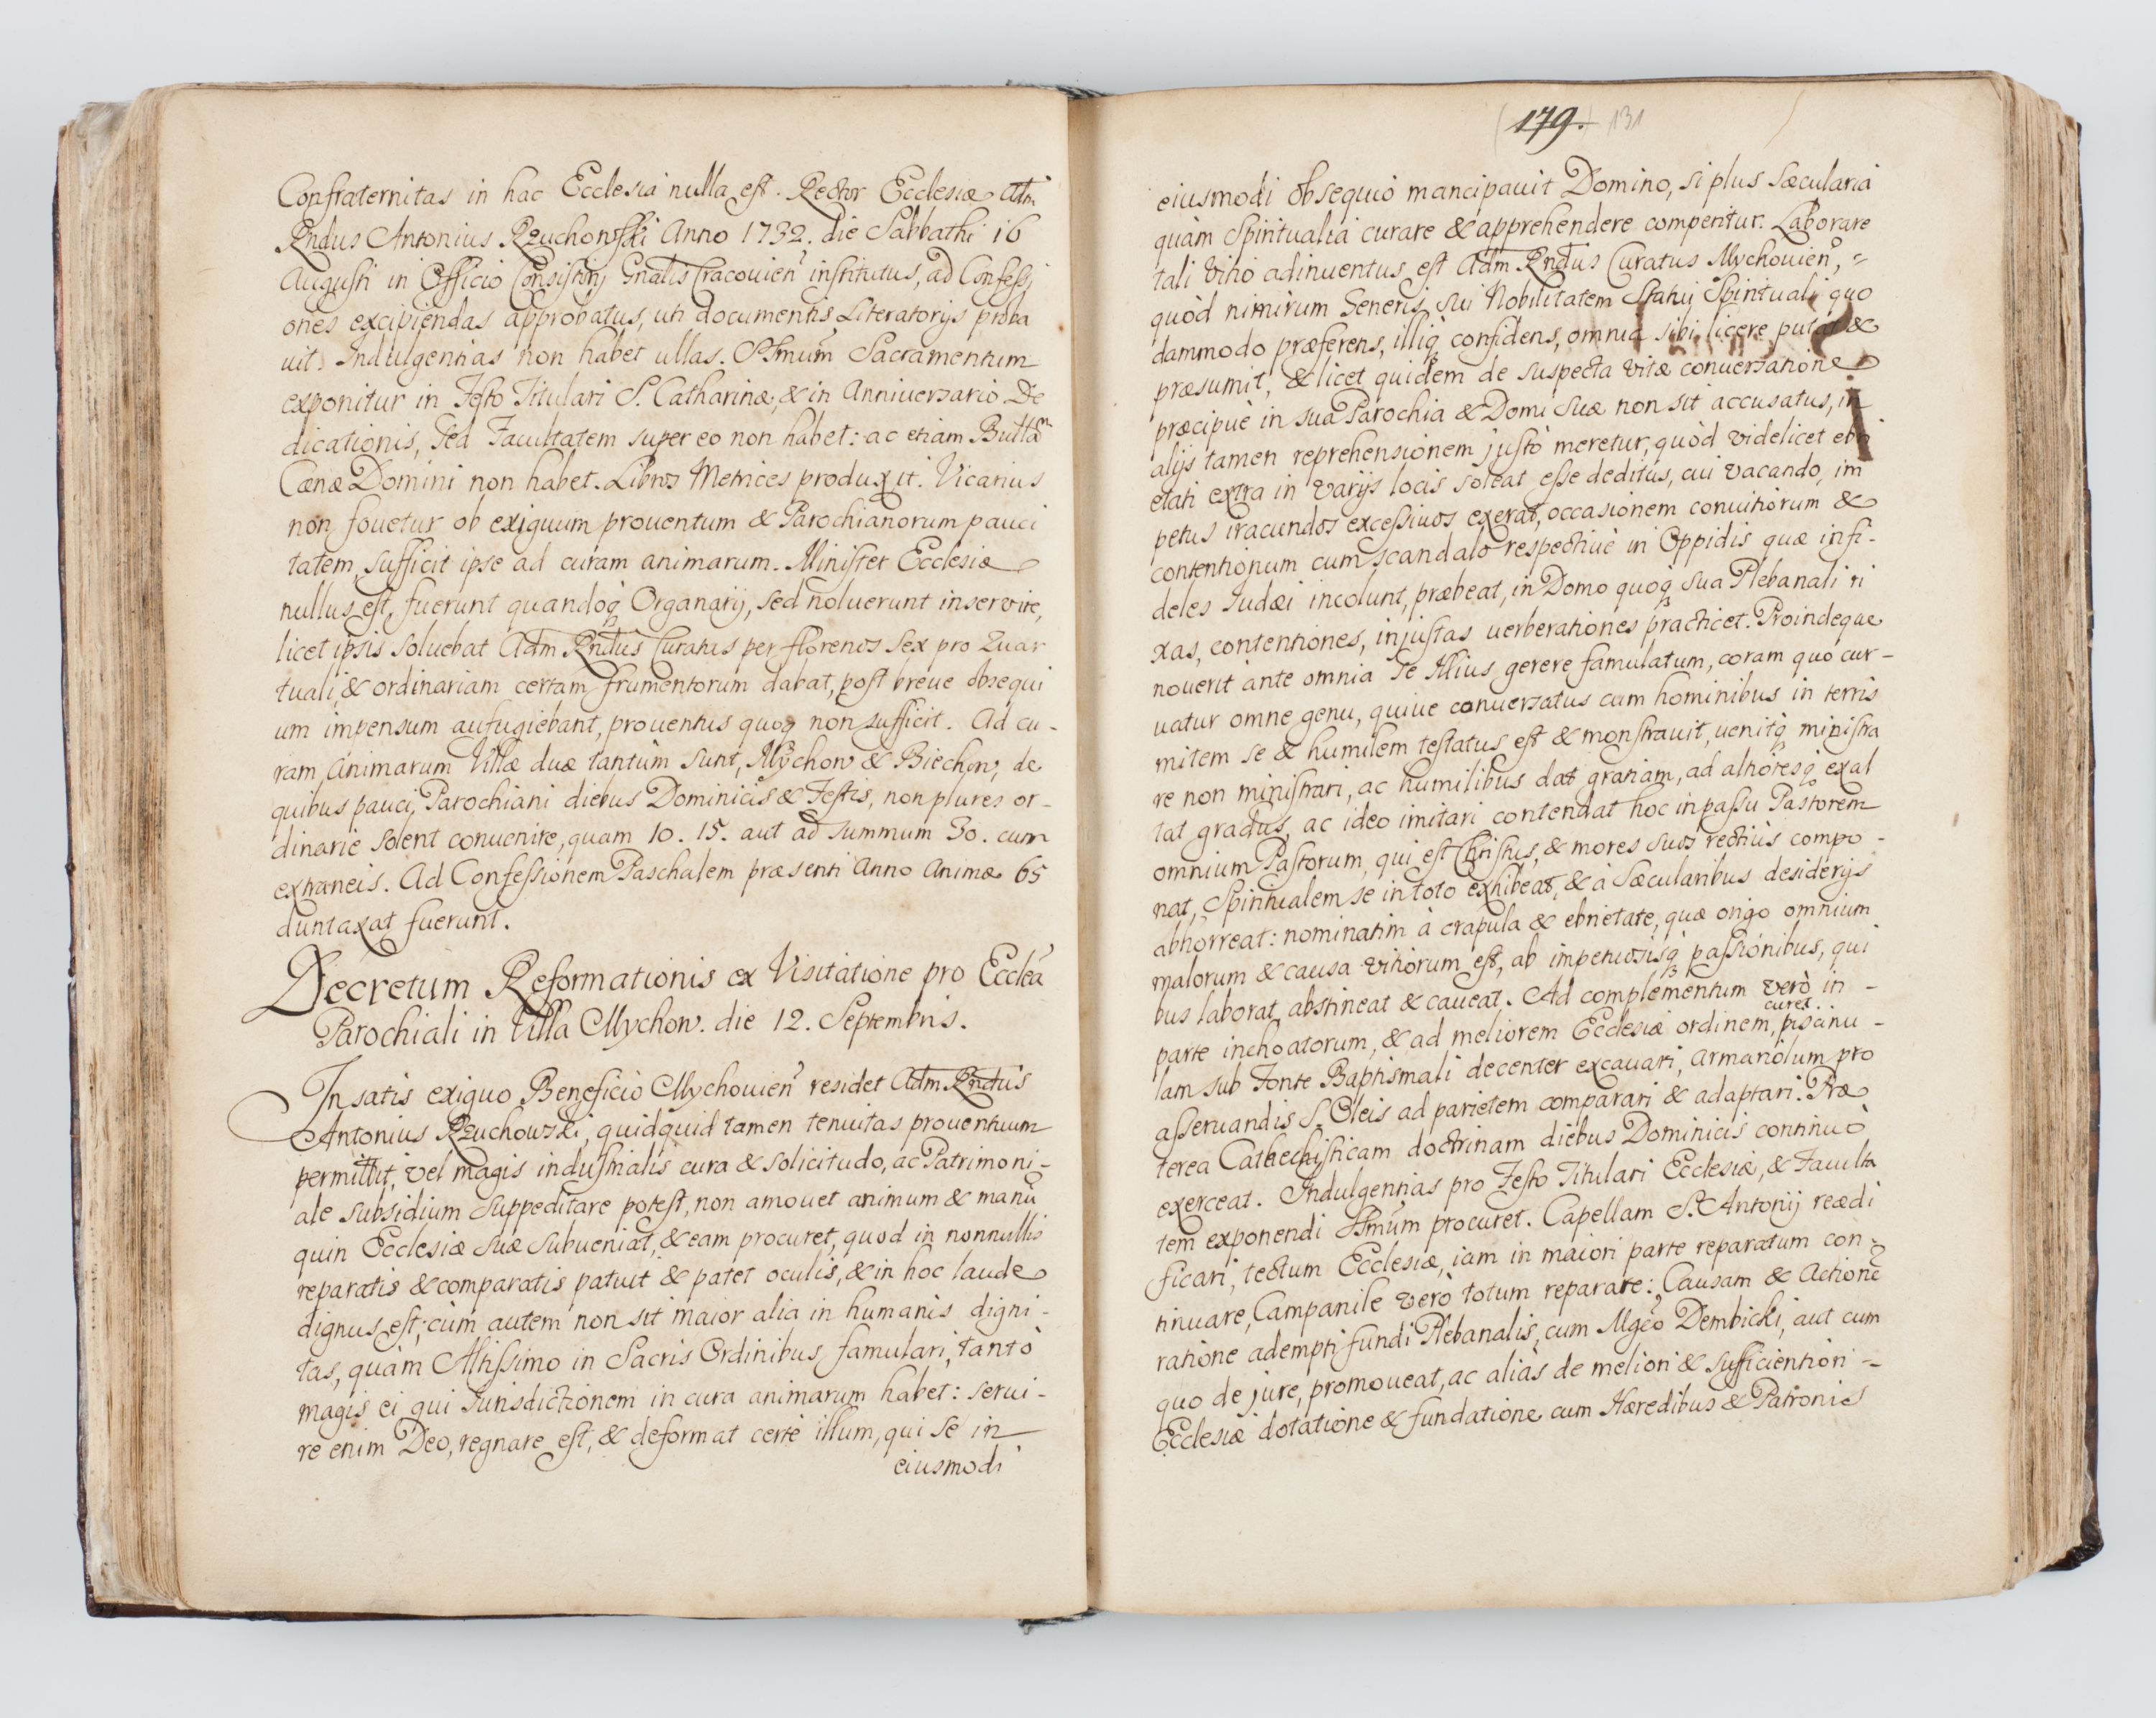 Confraternitas in hac Ecclesia nulla est. Rector Ecclesiæ Adm
Rndus Antonius Rzuchowski Anno 1732. die Sabbathi 16
Augusti in Officio Consistorij Gnalis Cracouien̄ institutus, ad Confessi
ones excipiendas approbatus, uti documentis Literatorijs proba
uit. Indulgentias non habet ullas. SSmum Sacramentum
exponitur in Festo Titulari S. Catharinæ, & in Anniuersario De
dicationis, sed Facultatem super eo non habet: ac etiam Bullam
Cænæ Domini non habet. Libros Metrices produxit. Vicarius
non fouetur ob exiguum prouentum & Parochianorum pauci
tatem, sufficit ipse ad curam animarum. Minister Ecclesiæ
nullus est, fuerunt quandoq; Organarij, sed noluerunt inservire,
licet ipsis soluebat Adm Rndus Curatus per florenos sex pro Quar
tuali, & ordinariam certam frumentorum dabat, post breue obsequi
um impensum aufugiebant, prouentus quoq; non sufficit. Ad cu-
ram Animarum Villæ duæ tantùm sunt, Mychow & Biechow, de
quibus pauci Parochiani diebus Dominicis & Festis, non plures or-
dinarie solent conuenire, quam 10. 15. aut ad summum 30. cum
extraneis. Ad Confessionem Paschalem præsenti Anno Animæ 65
duntaxat fuerunt.
Decretum Reformationis ex Visitatione pro Eccleā
Parochiali in Villa Mychow. die 12. Septembris.
In satis exiguo Beneficio Mychouien̄ residet Adm Rndus
Antonius Rzuchowski, quidquid tamen tenuitas prouentuum
permittit, vel magis industrialis cura & solicitudo, ac Patrimoni-
ale subsidium suppeditare potest, non amouet animum & manū
quin Ecclesiæ suæ subueniat, & eam procuret, quod in nonnullis
reparatis & comparatis patuit & patet oculis, & in hoc laude
dignus est; cùm autem non sit maior alia in humanis digni-
tas, quàm Altissimo in Sacris Ordinibus famulari, tantò
magis ei qui Iurisdictionem in cura animarum habet: serui-
re enim Deo, regnare est, & deformat certè illum, qui se in
eiusmodi
179. 131
eiusmodi obsequio mancipauit Domino, si plus sæcularia
quàm Spiritualia curare & apprehendere comperitur. Laborare
tali vitio adinuentus est Adm Rndus Curatus Mychouien̄, =
quòd nimirum Generis sui Nobilitatem Statui Spirituali quo
dammodo præferens, illiq; confidens, omnia sibi licere putat &
præsumit, & licet quidem de suspecta vitæ conuersatione
præcipuè in sua Parochia & Domi suæ non sit accusatus, in
alijs tamen reprehensionem justò meretur, quòd videlicet ebri
etati extra in varijs locis soleat esse deditus, cui vacando, im
petus iracundos excessiuos exerat, occasionem conuitiorum &
contentionum cum scandalo respectiuè in Oppidis quæ infi-
deles Iudæi incolunt, præbeat, in Domo quoq; sua Plebanali ri
xas, contentiones, injustas uerberationes practicet. Proindeque
nouerit ante omnia se Illius gerere famulatum, coram quo cur-
uatur omne genu, quiue conuersatus cum hominibus in terris
mitem se & humilem testatus est & monstrauit, uenitq; ministra
re non ministrari, ac humilibus dat gratiam, ad altioresq; exal
tat gradus, ac ideo imitari contendat hoc in passu Pastorem
omnium Pastorum, qui est Christus, & mores suos rectius compo-
nat, Spiritualem se in toto exhibeat, & à sæcularibus desiderijs
abhorreat: nominatim à crapula & ebrietate, quæ origo omnium
malorum & causa vitiorum est, ab impetuosisq; passionibus, qui
bus laborat abstineat & caueat. Ad complementum verò in-
parte inchoatorum, & ad meliorem Ecclesiæ ordinem, curet piscinu-
lam sub Fonte Baptismali decenter excauari, armariolum pro
asseruandis S. Oleis ad parietem comparari & adaptari. Præ
terea Cathechisticam doctrinam diebus Dominicis continuò
exerceat. Indulgentias pro Festo Titulari Ecclesiæ, & Faculta
tem exponendi SSmum procuret. Capellam S. Antonij reædi
ficari, tectum Ecclesiæ, iam in maiori parte reparatum con-
tinuare, Campanile verò totum reparare: Causam & Actionē
ratione adempti fundi Plebanalis, cum Mgco Dembicki, aut cum
quo de jure, promoueat, ac alias de meliori & sufficientiori -
Ecclesiæ dotatione & fundatione cum Hæredibus & Patronis